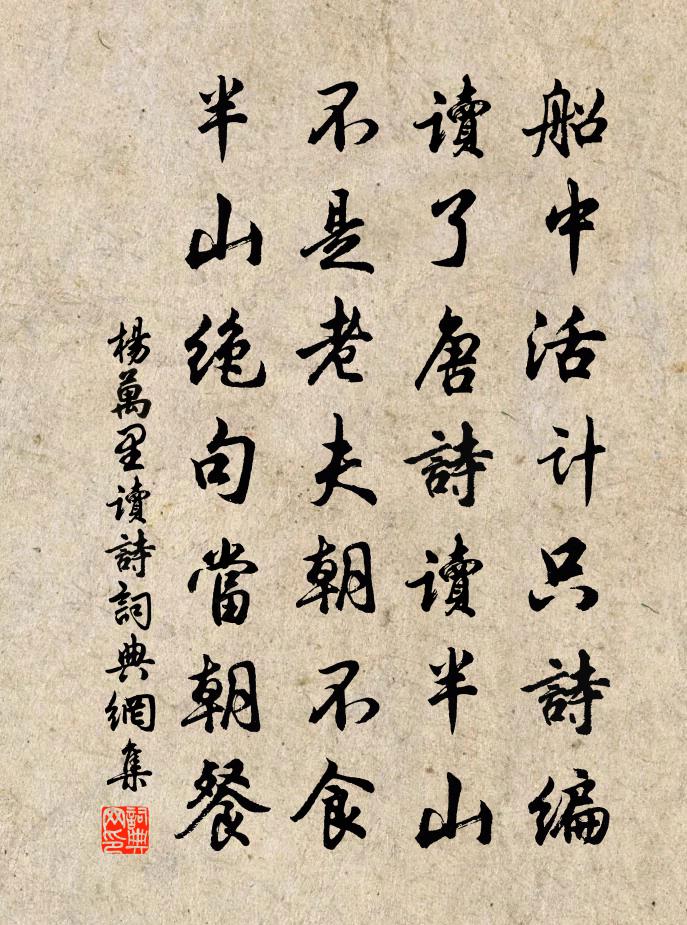 船中活计只詩编
讀了唐詩讀半山
不是老夫朝不食
半山绝句當朝餐
楊萬里讀詩詞典網集
詞典网印